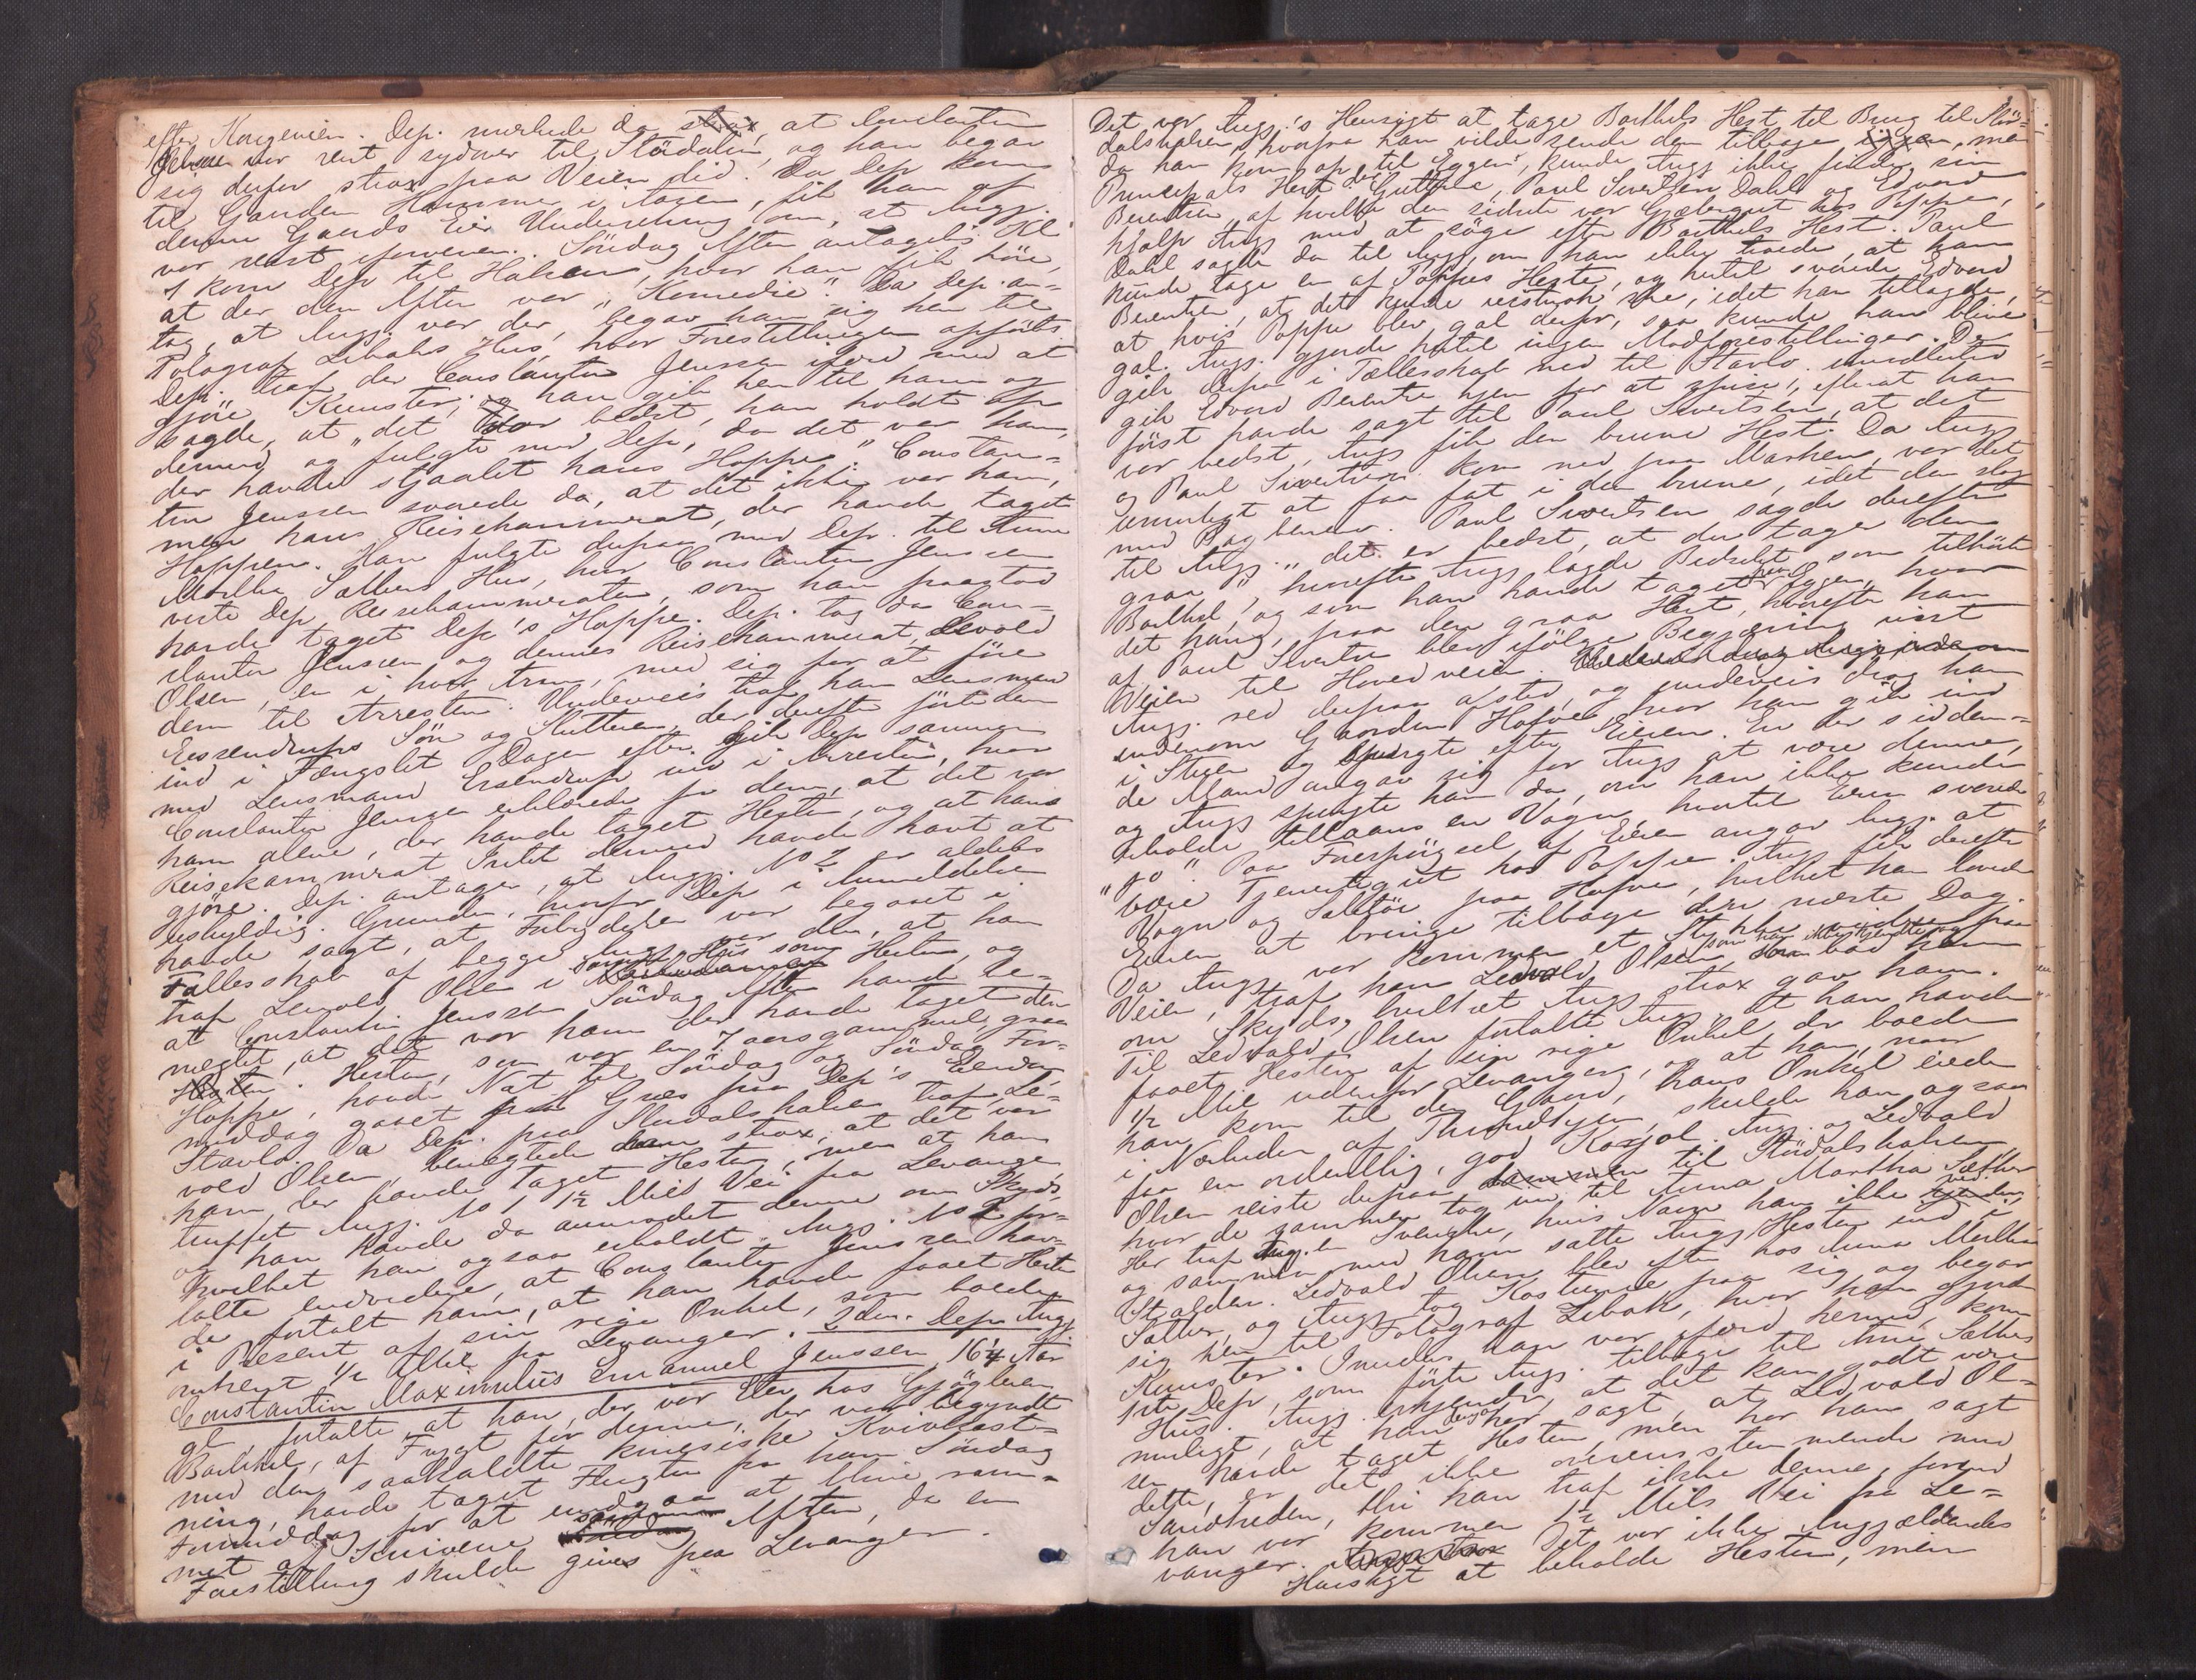 efter Kongeveien. Dep. merkede da strax, at Constantin
Jensen var reist sydover til Stördalen, og han begav
sig derfor strax paa Veien did. Da Dep kom
til Gaarden Hammer i Aasen, fik han af
denne Gaards Eier Underretning om, at Angj.
var reist forveien. Söndag Aften antagelig Kl
7 kom Dep til Halsen, hvor han fik höre,
at der den Aften var "Komedie". Da Dep. an-
tog, at Angj. var der, begav han sig hen til
Fotograf Libaks Hus, hvor Forestillingen opförtes
Dep. traf der Constantin Jenssen ifærd med at
gjöre Kunster, og han gik hen til ham og
sagde, at "det var bedst, han holdt op
dermed og fulgte med Dep, da det var ham,
der havde stjaalet hans Hoppe." Constan-
tin Jenssen svarede da, at det ikke var ham,
men hans Reisekammerat, der havde taget
Hoppen. Han fulgte derpaa med Dep. til Anna
Martha Sæthers Hus, hvor Constantin Jenssen
viste Dep Reisekammeraten, som han paastod
havde taget Dep's Hoppe. Dep. tog da Con-
stantin Jenssen og dennes Reisekammerat, Ledvold
Olsen, en i hver Arm, med sig for at före
dem til Arresten. Underveis traf han Lensmand
Essendrops Sön og Slutteren, der derefter förte dem
ind i Fængslet. Dagen efter gik Dep sammen
med Lensmand Essendrop ind i Arresten, hvor
Constantin Jenssen erklærede for dem, at det var
ham alene, der havde taget Hesten, og at hans
Reisekammerat Intet dermed havde havt at
gjöre. Dep. antager, at Angj. No 2 er aldeles
uskyldig. Grunden, hvorfor Dep i Anmeldelsen
havde sagt, at Forbrydelsen var begaaet i
Fællesskab af begge Angj. var den, at han
traf Ledvold Olsen i samme Hus som Hesten, og
at Constantin Jenssen Söndag Aften havde be-
nægtet, at det var ham der havde taget den
Hesten. Hesten, som var en 7 aarsgammel, graa
Hoppe, havde Nat til Söndag og Söndag For-
middag gaaet paa Græs paa Dep's Eiendom
Stavlo. Da Dep. paa Stördalshalsen traf Led-
vold Olsen benegtede han strax, at det var
ham, der havde taget Hesten, men at han
truffet Angj. No 1 1½ Mils Vei fra Levanger
og han havde da anmodet denne om Skyds,
hvilket han ogsaa erholdt. Angj. No 2 for-
talte endvidere, at Constantin Jenssen hav-
de fortalt ham, at han havde faaet Hesten
i Present af sin rige Onkel, som boede
omtrent ½ Mil fra Levanger. 2den Dep Angj
Constantin Maximilius Emanuel Jenssen, 16¼ Aar
gl fortalte, at han, der var Elev hos Gjögleren
Barthel, af Frygt for denne, der var begyndt
med den saakaldte kinesiske Knivkast-
ning, havde taget Flugten fra ham Söndag
Formiddag for at undgaa at blive ram-
met af Knivene samme Aften, da en
Forestilling skulde gives paa Levanger.
Det var Angj.'s Hensigt at tage Barthels Hest til Brug til Stör-
dalshalsen, hvorfra han vilde sende den tilbage igjen, men
da han kom op til Eggen, kunde Angj ikke finde sin
Principals Hest. Guttene, Paul Sivertsen Dahl og Edvard
Berentsen, af hvilke den sidste var Gjætergut hos Poppe,
hjalp Angj med at söge efter Barthels Hest. Paul
Dahl sagde da til Angj, om han ikke troede, at han
kunde tage en af Poppes Heste, og hertil svarede Edvard
Berentsen, at det kunde visstnok ske, idet han tillagde,
at hvis Poppe blev gal derfor, saa kunde han blive
gal. Angj. gjorde hertil ingen Modforestillinger. De
gik derpaa i Fællesskab ned til Stavlo. imidlertid
gik Edvard Berentsen hjem for at spise, efterat han
först havde sagt til Paul Sivertsen, at det
var bedst, Angj fik den brune Hest. Da Angj
og Paul Sivertsen kom ned paa Marken, var det
umuligt at faa fat i den brune, idet den slog
med Bagbenene. Paul Sivertsen sagde derefter
til Angj: "det er bedst, at du tager den
graa", hvorefter Angj lagde Bidselet, som tilhörte
Barthel, og som han havde taget paa Eggen, hvor
det hang, paa den graa Hest, hvorefter han
af Paul Sivertsen blev ifölge Begjæring vist
Veien til Hovedveien.
Angj. red derpaa afsted, og underveis drog han
indenom Gaarden Hafve, hvor han gik ind
i Stuen og spurgte efter Eieren. En der sidden-
de Mand angav sig for Angj at være denne,
og Angj spurgte han da, om han ikke kunde
erholde tillaans en Vogn, hvortil Eieren svarede
"jo". Paa Forespörgsel af Eieren angav Angj. at
være Tjenestegut hos Poppe. Angj fik derefter
Vogn og Sæletöi paa Hafve, hvilket han lovede
Eieren at bringe tilbage den næste Dag.
Da Angj var kommen et Stykke fra
Veien, traf han Ledvold Olsen, som bad ham
om Skyds, hvilket Angj strax gav ham.
Til Ledvold Olsen fortalte Angj. at han havde
faaet Hesten af sin rige Onkel, der boede
½ Mil udenfor Levanger, og at han, naar
han kom til den Gaard, hans Onkel eiede
i Nærheden af Throndhjem, skulde han ogsaa
faa en ordentlig, god Karjol. Angj. og Ledvold
Olsen reiste derpaa sammen til Stördalshalsen,
hvor de sammen tog ind til Anna Martha Sæther
Her traf Angj. en Svenske, hvis Navn han ikke ved,
og sammen med ham satte Angj Hesten ind i
Stalden. Ledvold Olsen blev efter hos Anna Martha
Sæther, og Angj tog Kostume paa sig og begav
sig hen til Fotograf Libak, hvor han gjorde
Kunster. Imedens han var ifærd hermed, kom
1ste Dep, som förte Angj. tilbage til Anna Sæthers
Hus. Angj. erkjender, at det kan godt være
muligt, at han her sagt, at Ledvold Ol-
sen havde taget Hesten, men har han sagt
dette, er det ikke overensstemmende med
Sandheden, thi han traf ikke denne, forend
han var kommen 1½ Mils Vei fra Le-
vanger. Det var ikke Angjældendes
Hensigt at beholde Hesten, men